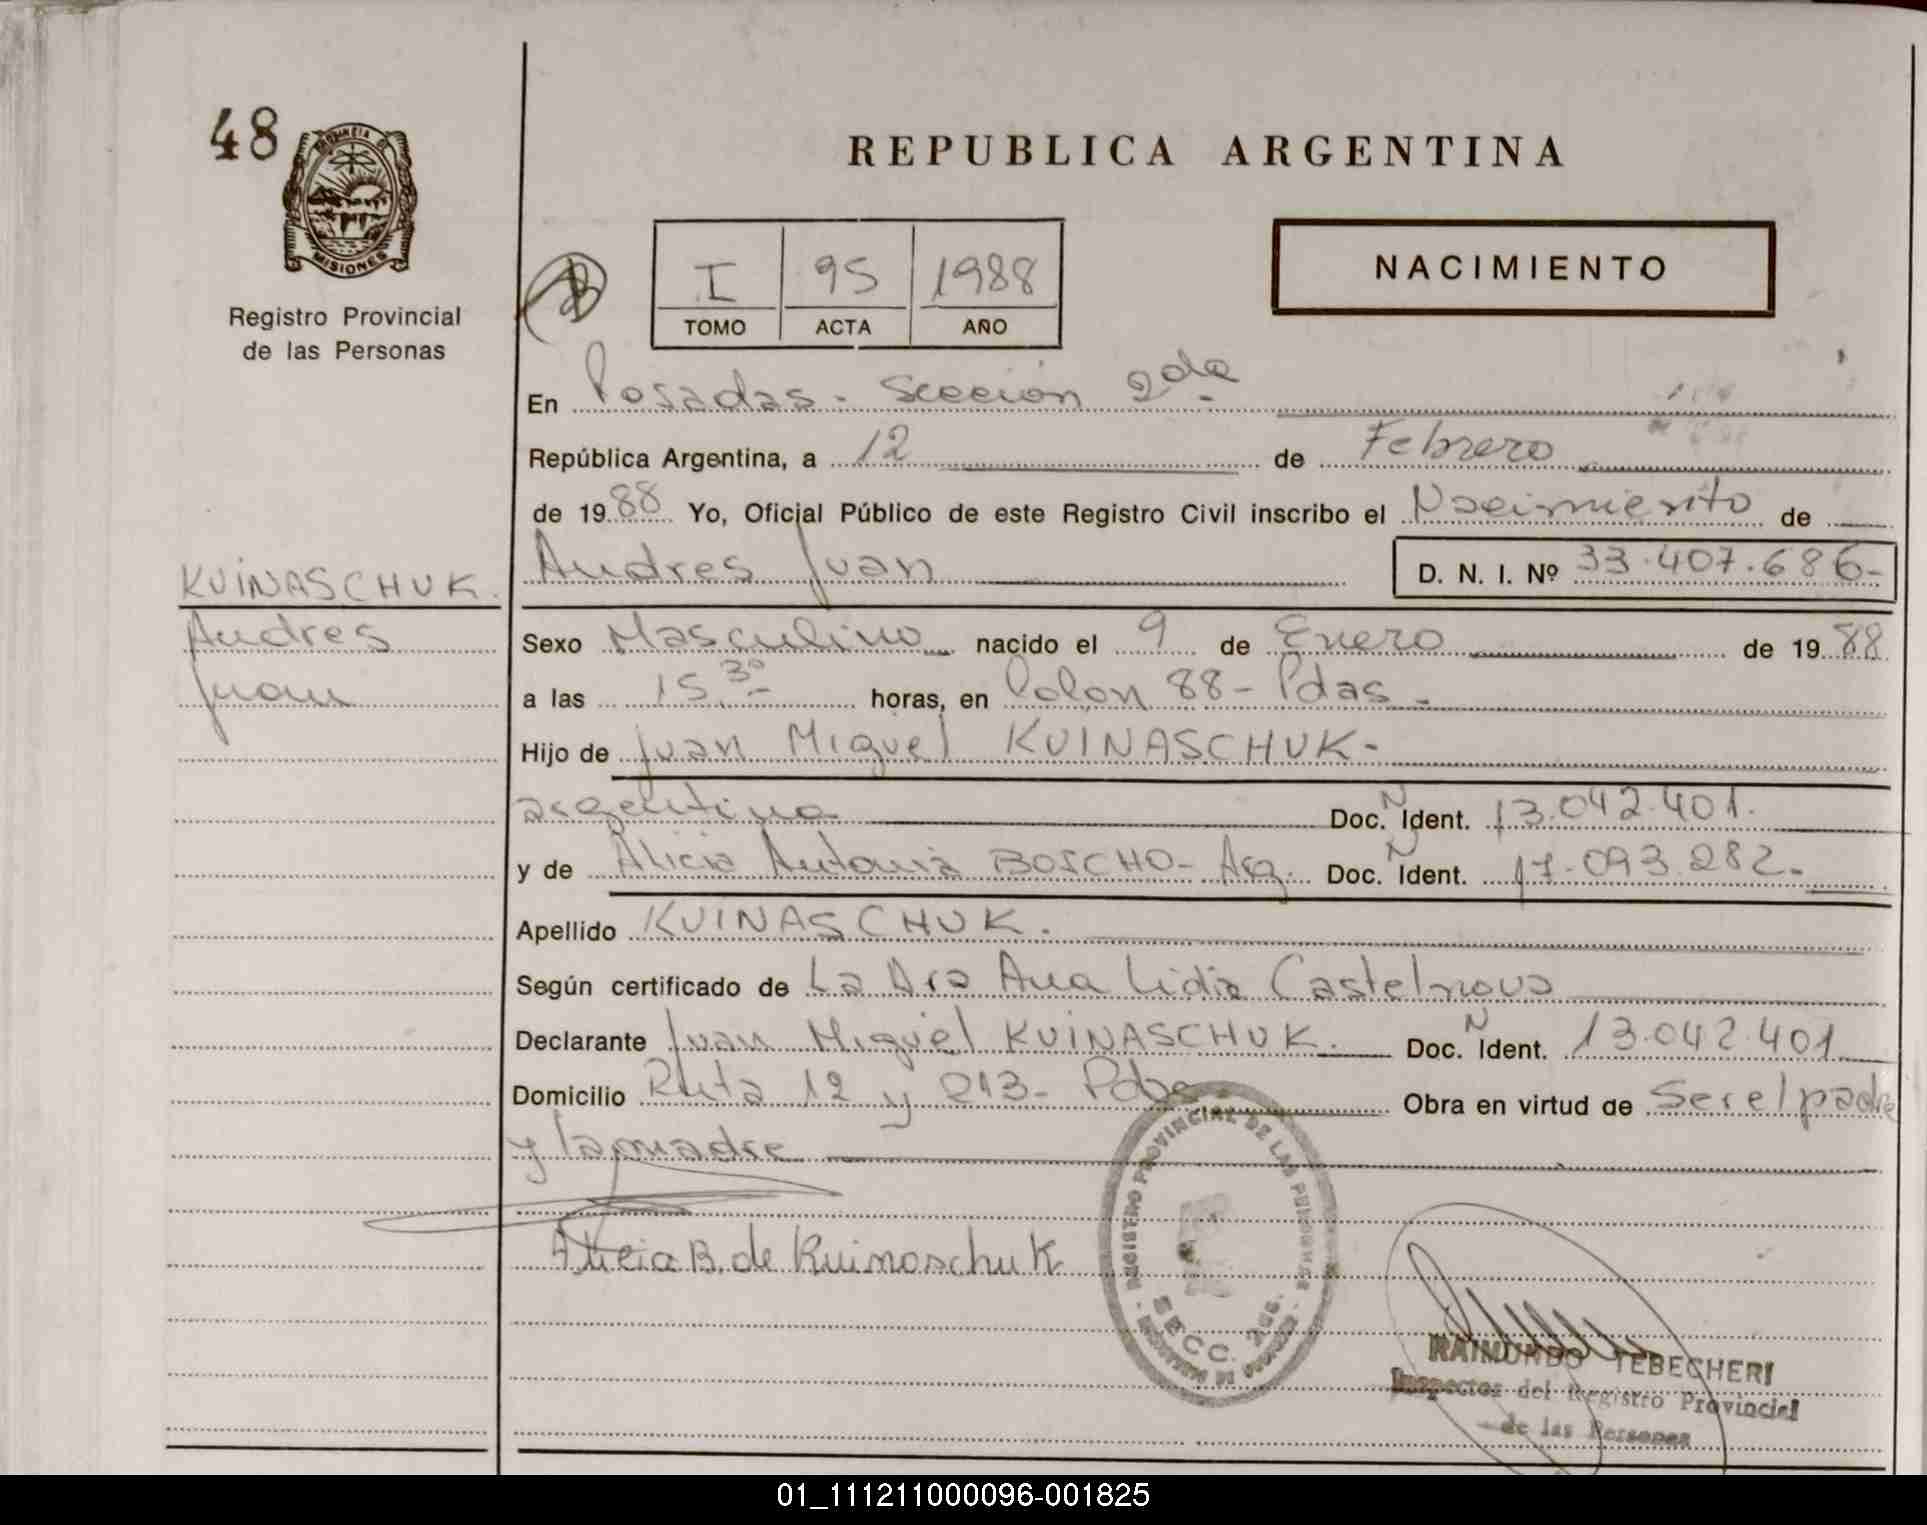 48
PROVINCIA DE
MISIONES
Registro Provincial
de las Personas
REPUBLICA ARGENTINA
I 95 1988
TOMO ACTA AÑO
NACIMIENTO
En Posadas - Sección 2da -
República Argentina, a 12 de Febrero
de 1988 Yo, Oficial Público de este Registro Civil inscribo el Nacimiento de
Andres Juan D. N. I. Nº 33.407.686-
KUINASCHUK.
Andres
Juan
Sexo Masculino nacido el 9 de Enero de 1988
a las 15.30- horas, en Colon 88 - Pdas -
Hijo de Juan Miguel KUINASCHUK -
argentino Doc. N Ident. 13.042.401.
y de Alicia Antonia BOSCHO - Arg. Doc. N Ident. 17.093.282-
Apellido KUINASCHUK.
Según certificado de La Dra Ana Lidia Castelnovo
Declarante Juan Miguel KUINASCHUK. Doc. N Ident. 13.042.401
Domicilio Ruta 12 y 213 - Pdas Obra en virtud de Ser el padre
y la madre
Alicia B. de Kuinaschuk
REGISTRO PROVINCIAL DE LAS PERSONAS
SECC. 2da.
RAIMUNDO TEBECHERI
Inspector del Registro Provincial
de las Personas
01_111211000096-001825